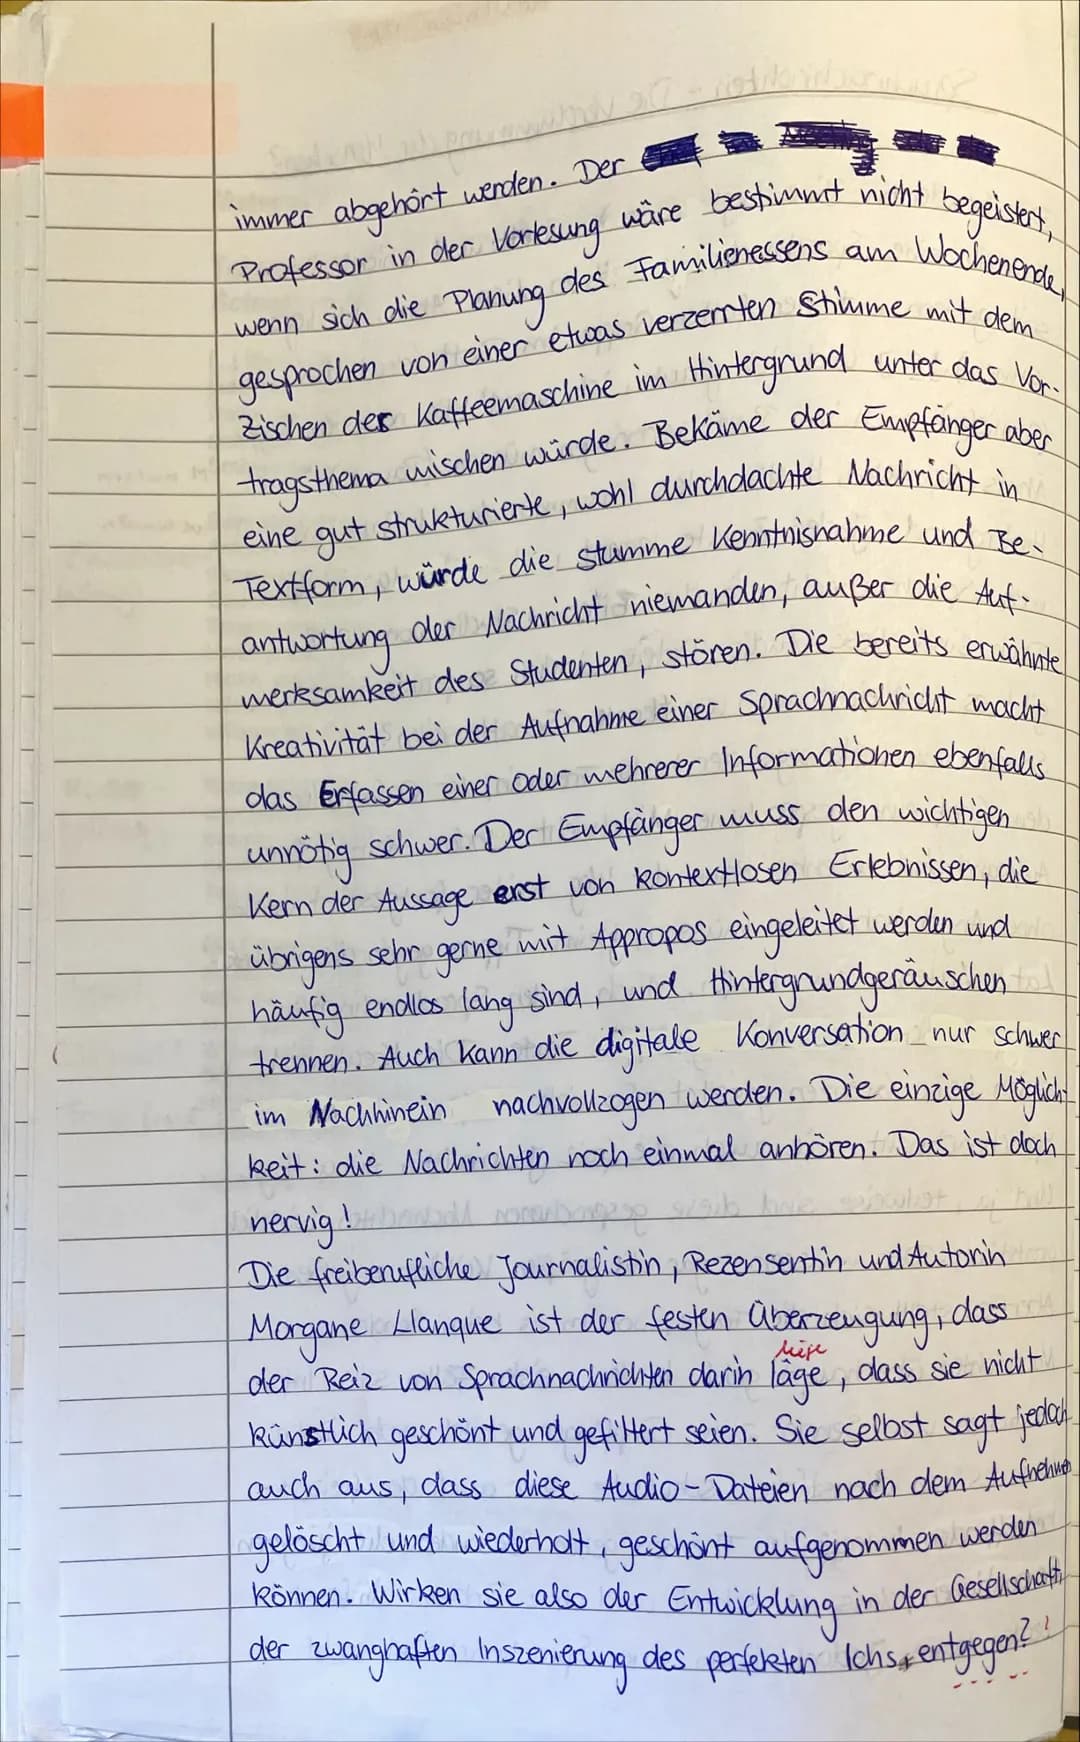 immer abgehört werden. Der
Professor in der Vorlesung wäre bestimmt nicht begeistert,
wenn sich die Planung des Familienessens am Wochenende,
gesprochen von einer etwas verzerrten Stimme mit dem
Zischen der Kaffeemaschine im Hintergrund unter das Vor-
tragsthema mischen würde. Bekäme der Empfänger aber
eine gut strukturierte, wohl durchdachte Nachricht in
Textform, würde die stumme Kenntnisnahme und Be-
antwortung der Nachricht niemanden, außer die Auf-
merksamkeit des Studenten, stören. Die bereits erwähnte
Kreativität bei der Aufnahme einer Sprachnachricht macht
das Erfassen einer oder mehrerer Informationen ebenfalls
unnötig schwer. Der Empfänger muss den wichtigen
Kern der Aussage erst von kontextlosen Erlebnissen, die
übrigens sehr gerne mit Appropos eingeleitet werden und
häufig endlos lang sind, und Hintergrundgeräuschen
trennen. Auch kann die digitale Konversation nur schwer
im Nachhinein nachvollzogen werden. Die einzige Möglich-
keit: die Nachrichten noch einmal anhören. Das ist doch
nervig!
Die freiberufliche Journalistin, Rezensentin und Autorin
Morgane Llanque ist der festen Überzeugung, dass
liege
der Reiz von Sprachnachrichten darin läge, dass sie nicht
künstlich geschönt und gefiltert seien. Sie selbst sagt jedoch
auch aus, dass diese Audio-Dateien nach dem Aufnehmen
gelöscht und wiederholt, geschönt aufgenommen werden
können. Wirken sie also der Entwicklung in der Gesellschaft,
der zwanghaften Inszenierung des perfekten Ichs, entgegen? !